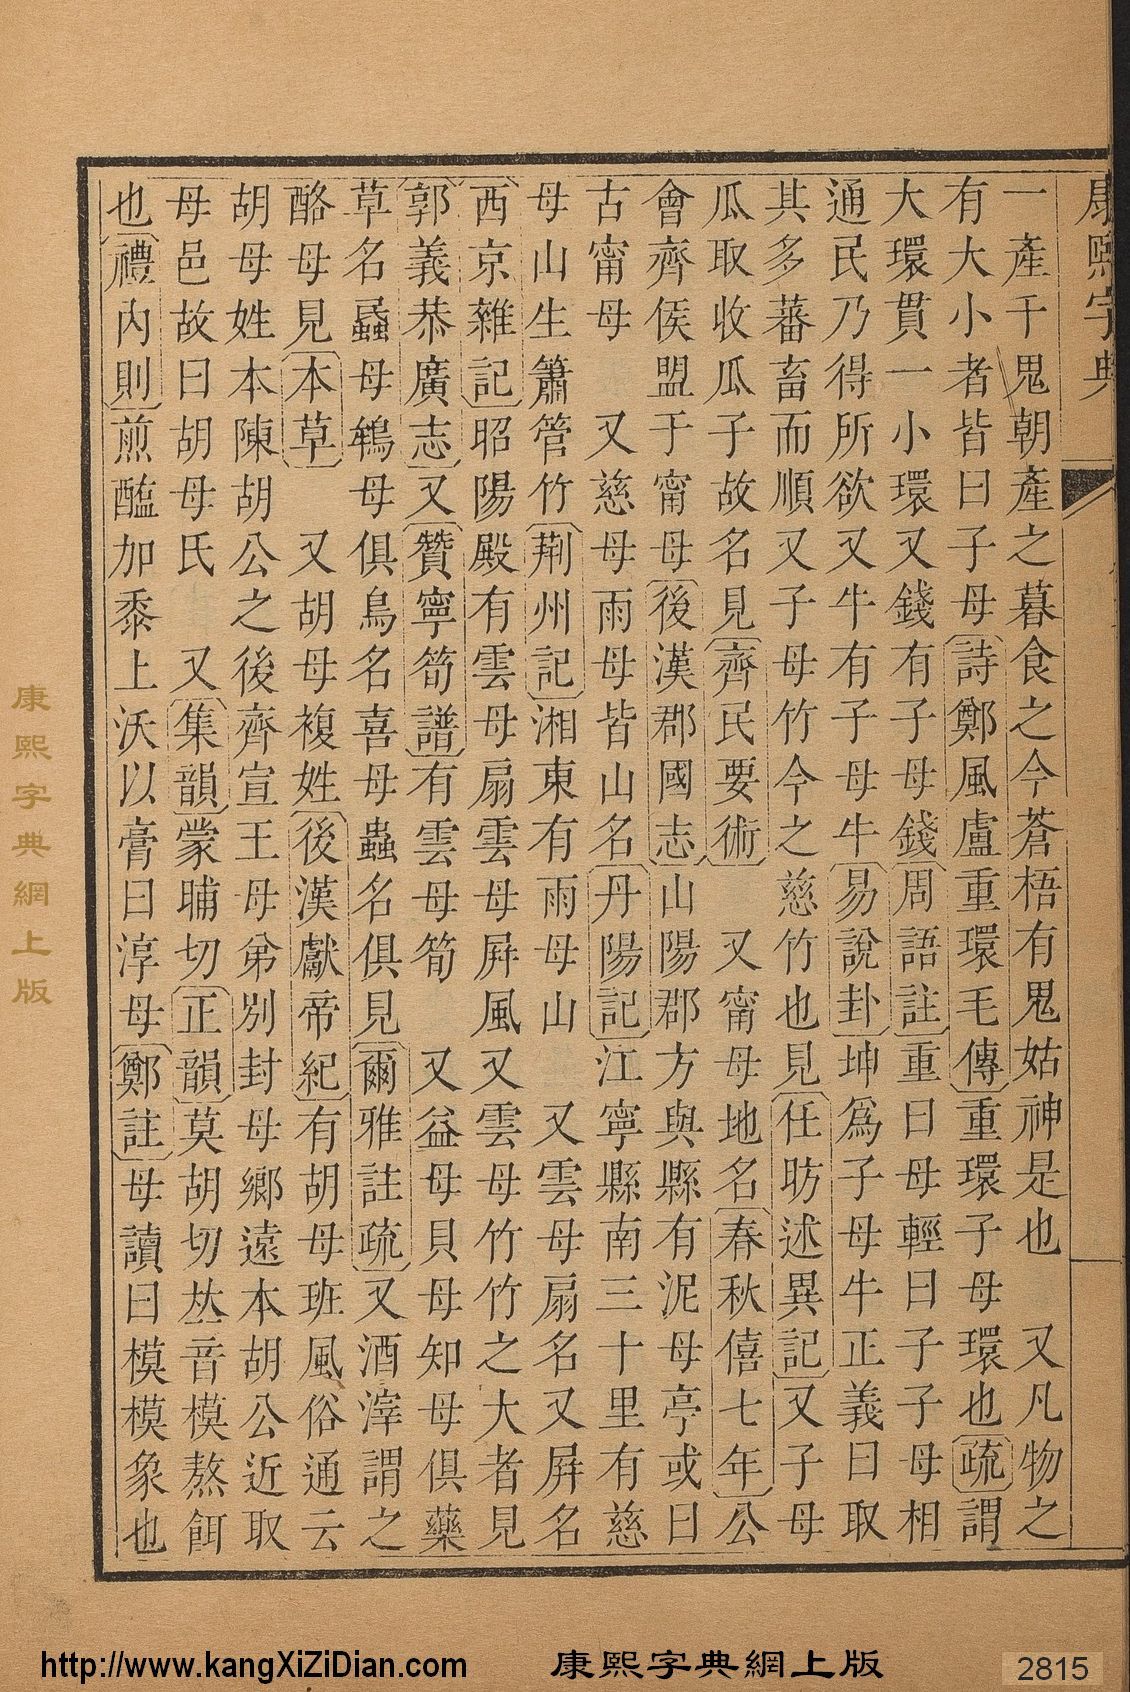 康熙字典
一產千鬼朝產之暮食之今蒼梧有鬼姑神是也 又凡物之
有大小者皆曰子母詩鄭風盧重環毛傳重環子母環也疏謂
大環貫一小環又錢有子母錢周語註重曰母輕曰子子母相
通民乃得所欲又牛有子母牛易說卦坤爲子母牛正義曰取
其多蕃畜而順又子母竹今之慈竹也見任昉述異記又子母
瓜取收瓜子故名見齊民要術 又甯母地名春秋僖七年公
會齊侯盟于甯母後漢郡國志山陽郡方與縣有泥母亭或曰
古甯母 又慈母雨母皆山名丹陽記江寧縣南三十里有慈
母山生簫管竹荆州記湘東有雨母山 又雲母扇名又屛名
西京雜記昭陽殿有雲母扇雲母屛風又雲母竹竹之大者見
郭義恭廣志又贊寧筍譜有雲母筍 又益母貝母知母俱藥
草名蝱母鴾母俱鳥名喜母蟲名俱見爾雅註疏又酒滓謂之
酪母見本草 又胡母複姓後漢獻帝紀有胡母班風俗通云
胡母姓本陳胡公之後齊宣王母弟別封母鄉遠本胡公近取
母邑故曰胡母氏 又集韻蒙晡切正韻莫胡切𠀤音模熬餌
也禮內則煎醢加黍上沃以膏曰淳母鄭註母讀曰模模象也
康熙字典網上版
http://www.kangXiZiDian.com 康熙字典網上版 2815